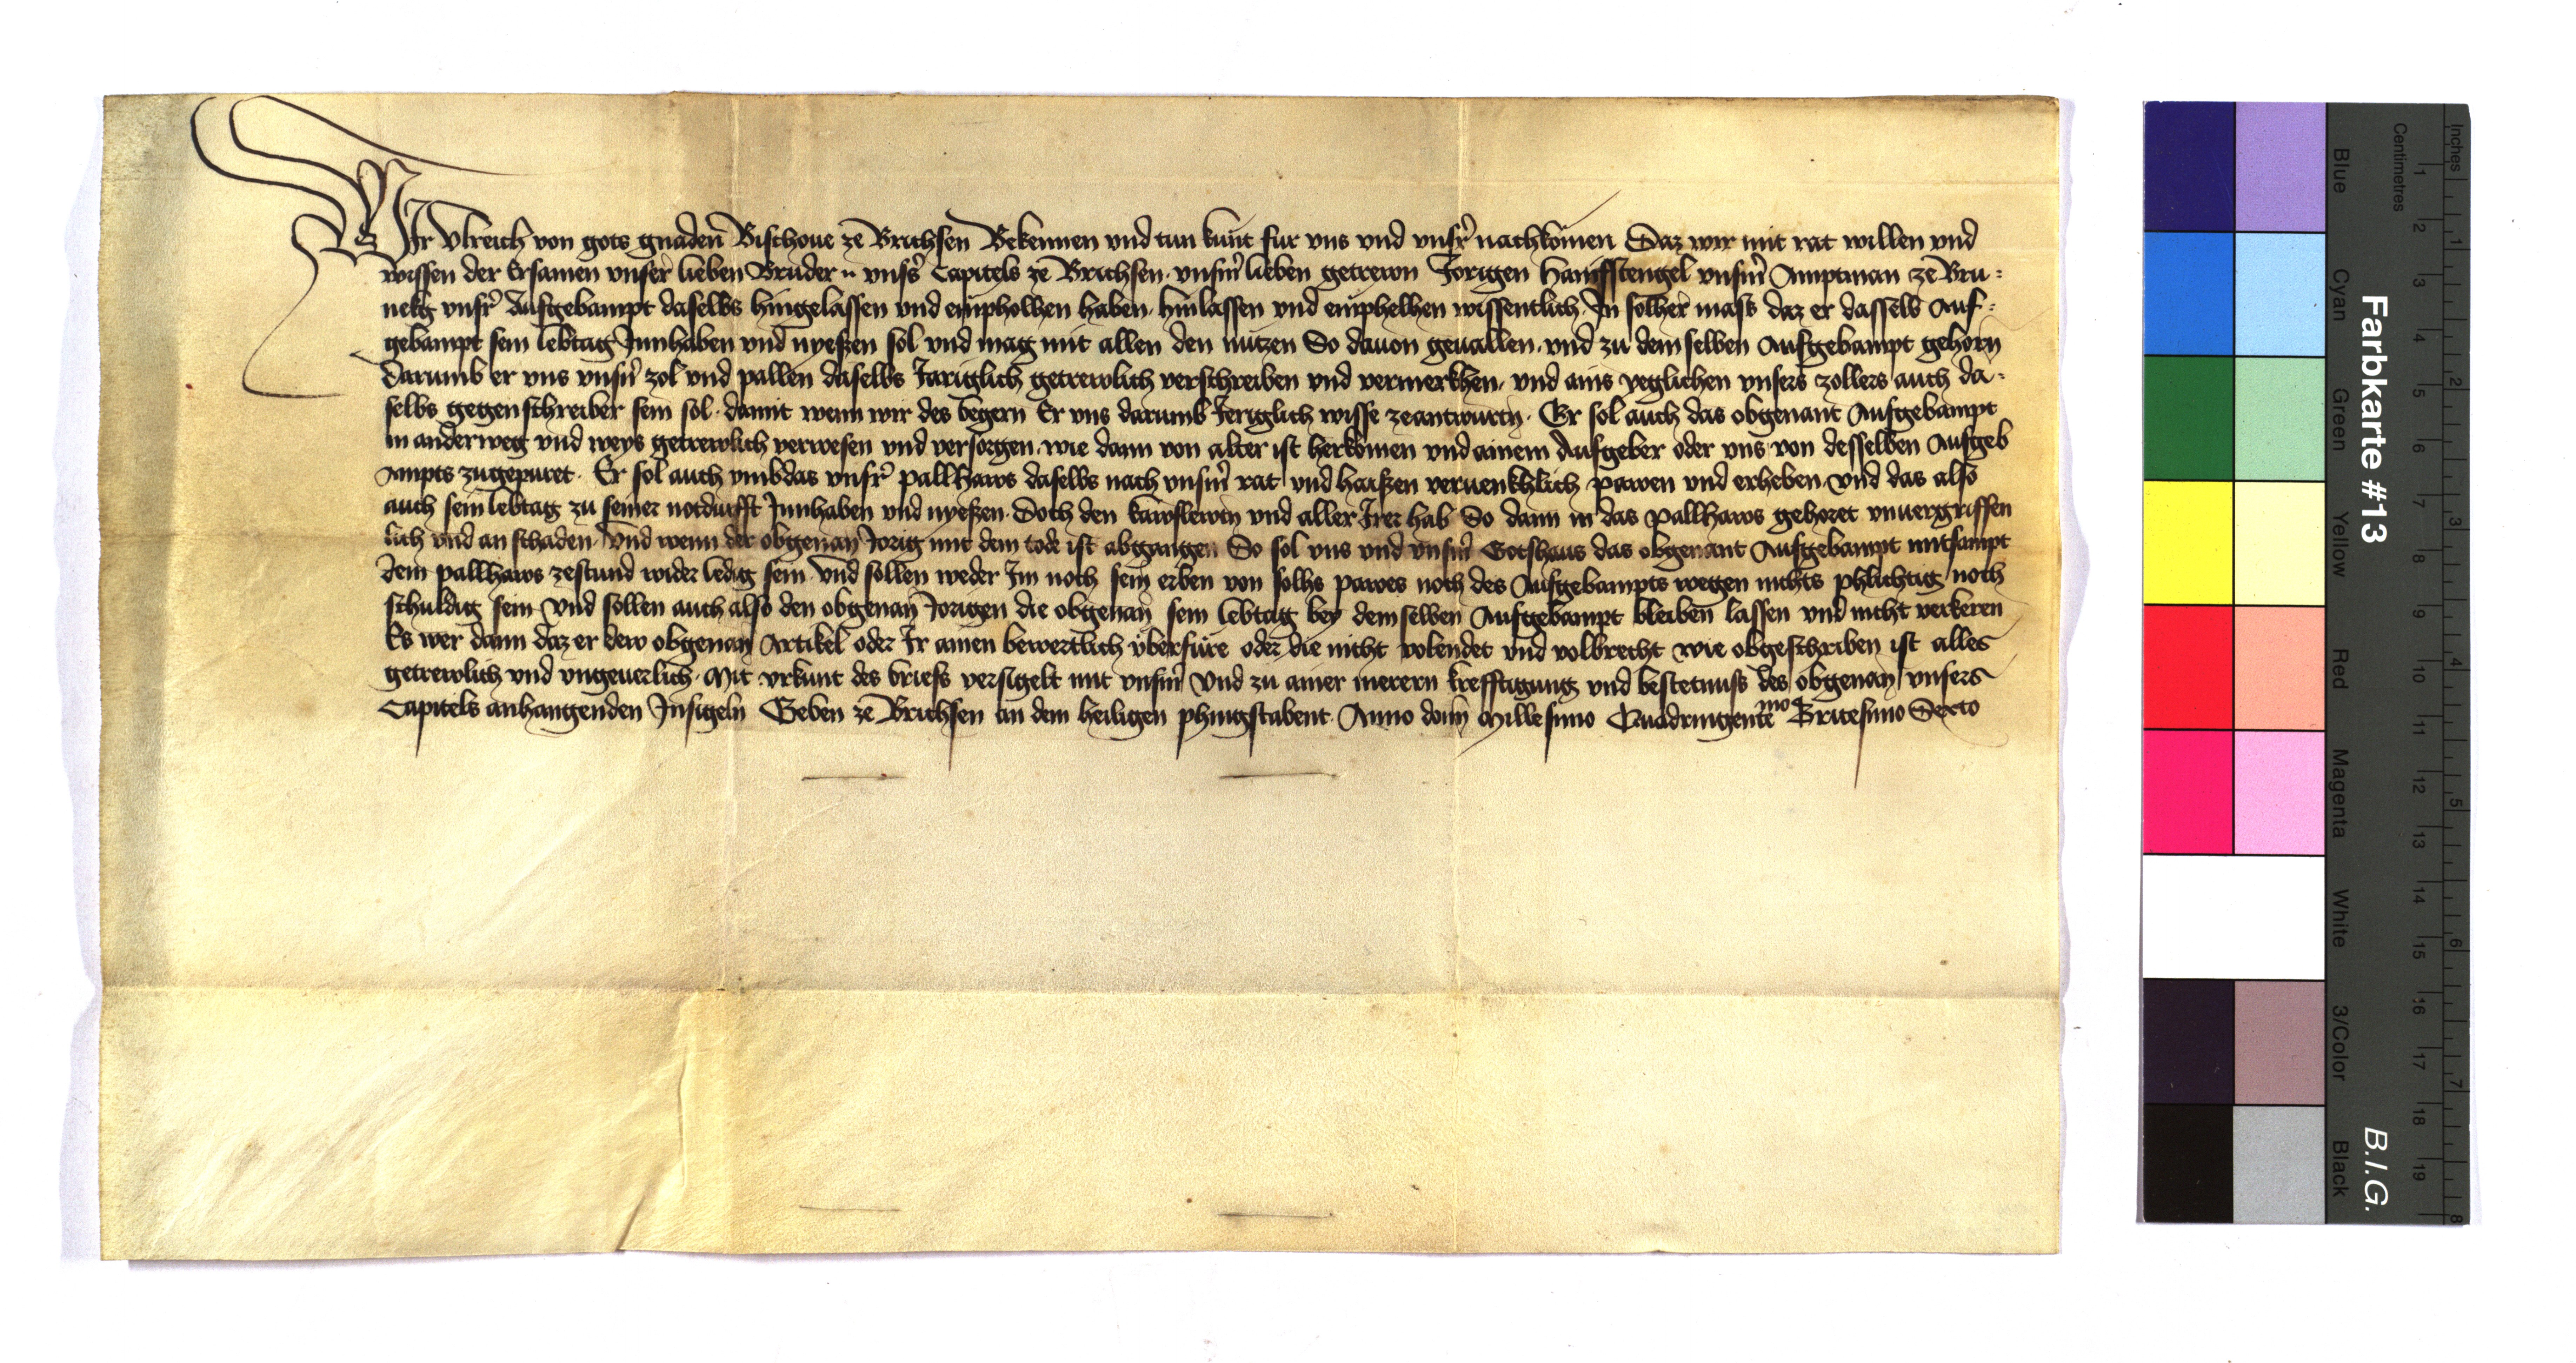 Wir Vlreich von gots gnaden Bischoue ze Brichsen Bekennen vnd tun kunt fur vns vnd vnsr nachkomen Daz wir mit rat willen vnd
wissen der Ersamen vnser lieben Bruder vnsers Capitels ze Brichsen vnserm lieben getrewn Jorigen Hanifstengel vnserm Amptman ze Bru=
nekg vnsr Aufgebampt daselbs hingelassen vnd empholhen haben hinlassen vnd emphelhen wissentlich In solher mass daz er dasselb Auf=
gebampt sein lebtag Innhaben vnd nyessen sol vnd mag mit allen den nutzen So dauon geuallen vnd zu dem selben Aufgebampt gehorn
Darumb er vns vnsern zol vnd pallen daselbs Jariglich getrewlich verschreiben vnd vermerkhen vnd ains yeglichen vnsers zollers auch da=
selbs gegenschreiber sein sol damit wenn wir des begern Er vns darumb Jeriglich wisse zeantwurtn Er sol auch das obgenant Aufgebampt
in anderweg vnd weys getrewlich verwesen vnd versorgen wie dann von alter ist herkomen vnd ainem Aufgeber oder vns von desselben Aufgeb
Ampts zugepuret Er sol auch vmbdas vnsr pallhaws daselbs nach vnserm rat vnd haissen veruenkhlich pawen vnd erheben vnd das also
auch sein lebtag zu seiner notdurfft Innhaben vnd nyessen Doch den kawflewtn vnd aller Irer hab So dann in das pallhaws gehoret vnuergriffen
lich vnd an schaden Vnd wenn der obgenan Jorig mit dem tode ist abgangen So sol vns vnd vnserm Gotshaus das obgenant Aufgebampt mitsampt
dem pallhaws zestund wider ledig sein vnd sollen weder Im noch sein erben von solhs pawes noch des Aufgebampts wegen nichts phlichtig noch
schuldig sein Vnd sollen auch also den obgenan Jorigen die obgenan sein lebtag bey demselben Aufgebampt bleiben lassen vnd nicht verkeren
Es wer dann daz er dew obgenan Artikel oder Ir ainen bewertlich uberfure oder die nicht volendet vnd volbrecht wie obgeschriben ist alles
getrewlich vnd vngeuerlich Mit vrkunt des briefs versigelt mit vnserm Vnd zu ainer merern krefftigung vnd bestetnuss des obgenan vnsers
Capitels anhangenden Insigeln Geben ze Brichsen an dem heiligen phingstabent Anno domini Millesimo Quadringentemo Tricesimo Sexto
Farbkarte #13
B.I.G.
Blue Cyan Green Yellow Red Magenta White 3/Color Black
Centimetres
1 2 3 4 5 6 7 8 9 10 11 12 13 14 15 16 17 18 19
Inches
1 2 3 4 5 6 7 8